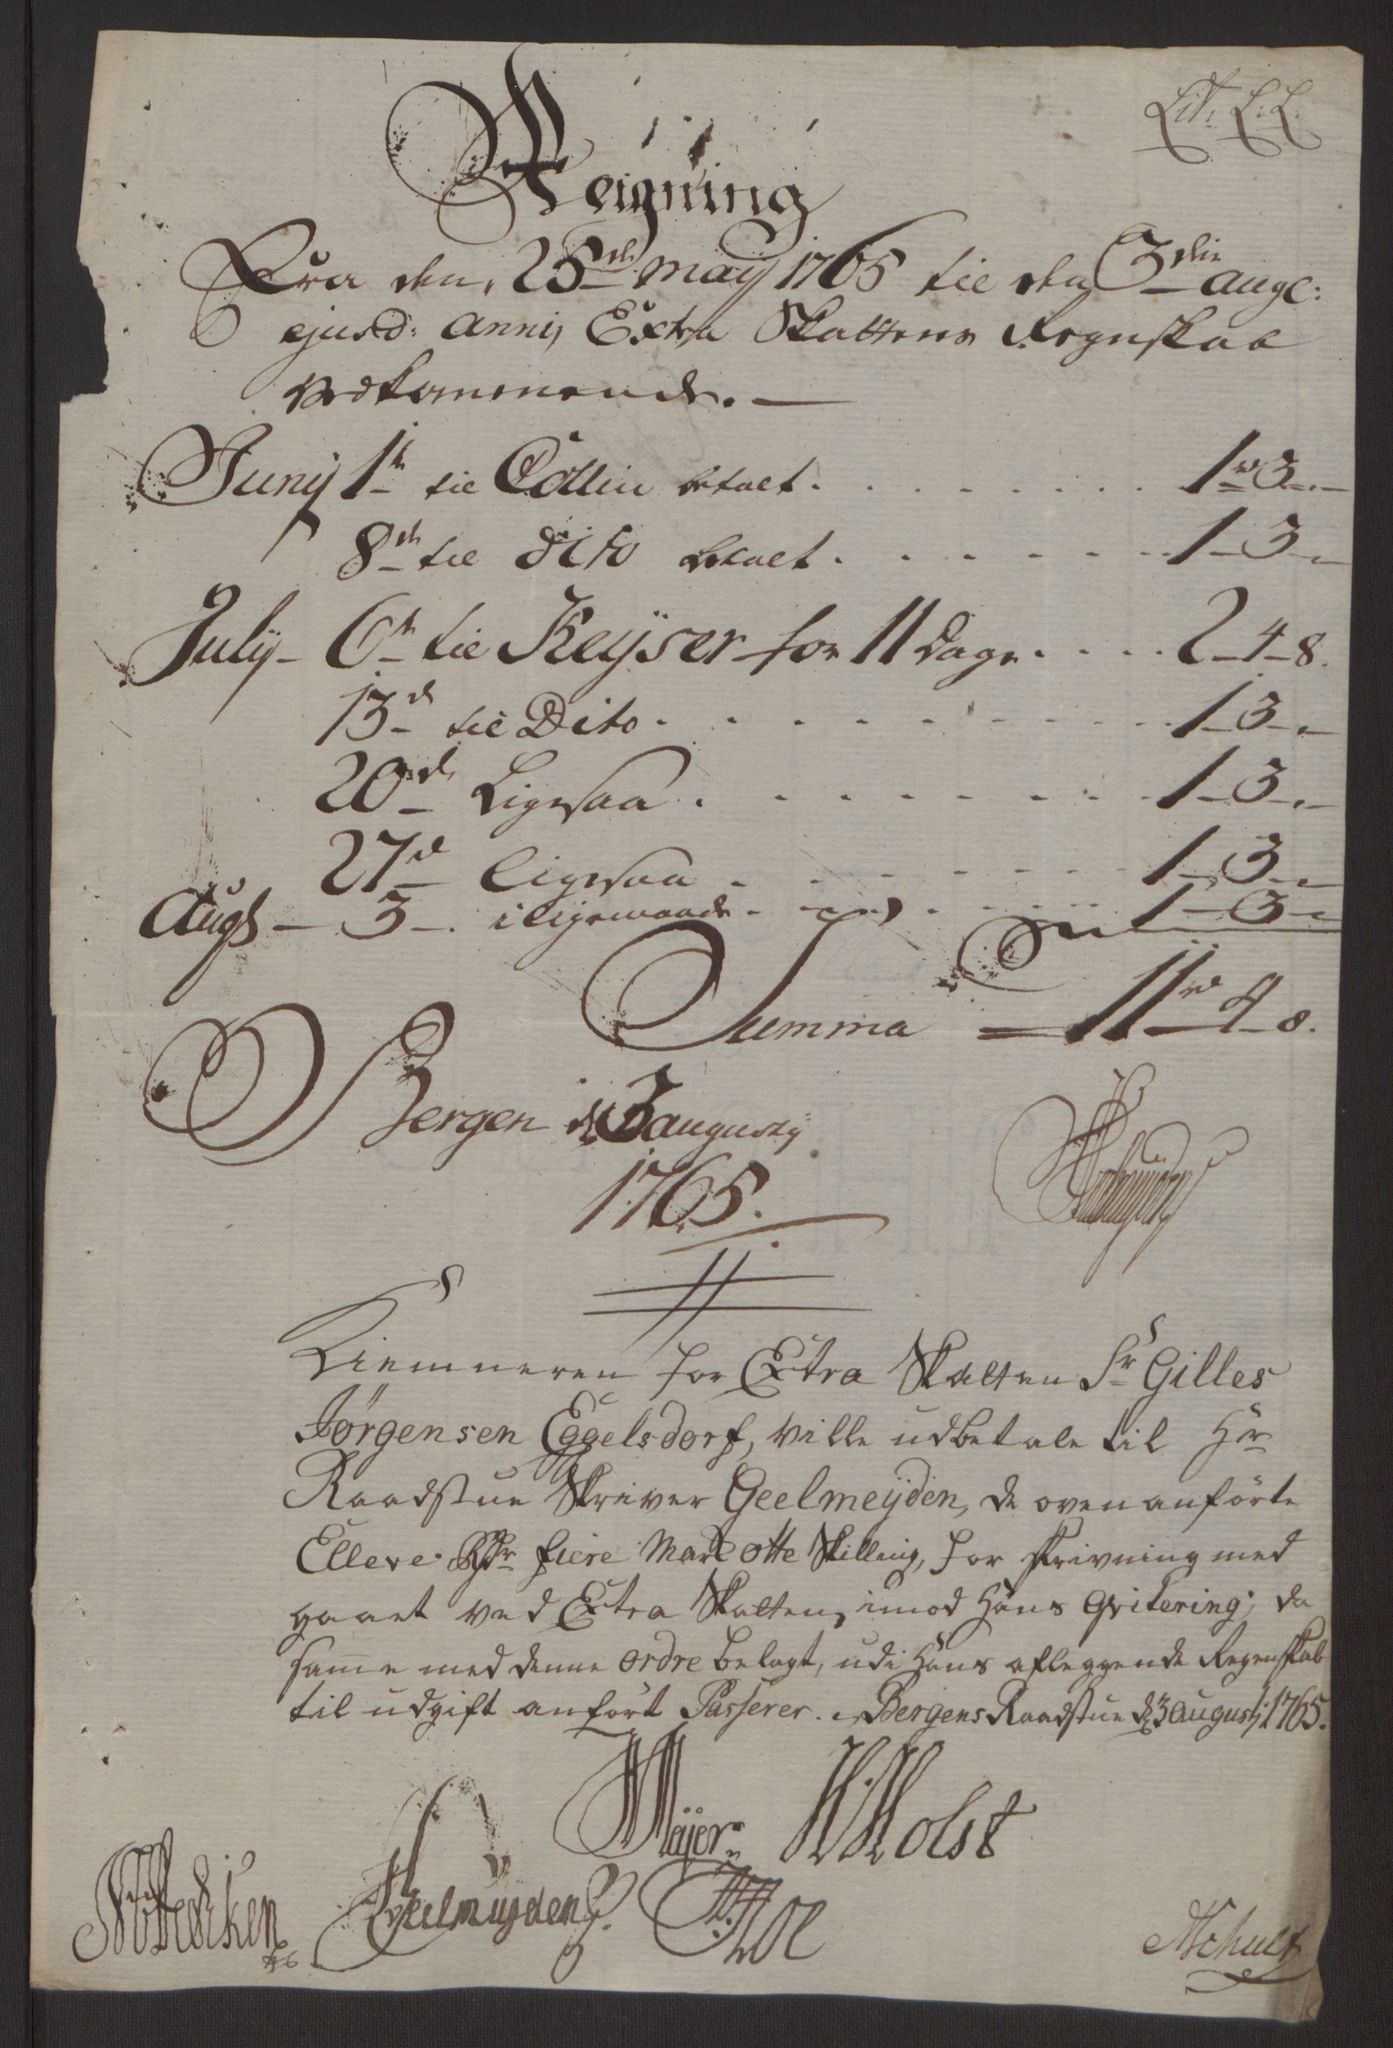 Lit. L:L.
Reigning
Fra den 25de may 1765 til den 3die aug:
ejusd: anni, Extra Skattens Regnskab
vedkommende.
Juny 1ste til Collin betalt . . . . . . . . 1 rd 3 -
8de til dito betalt . . . . . . . 1 - 3 -
July - 6te til Keyser for 11 dage . . . . 2 - 4 - 8.
13de til Dito . . . . . . . . . . 1 - 3 -
20de Ligesaa . . . . . . . . . 1 - 3 -
27de ligesaa . . . . . . . . . 1 - 3 -
Augst - 3 - . i ligemaade . . . . . 1 - 3 -
Summa 11 rd 4 - 8.
Bergen d 3 augusty
1765.
Kiemneren for Extra Skatten Sr Gilles
Jørgensen Eggelsdorf, ville udbetale til Hr
Raadstue Skriver Geelmeyden, de ovenanførte
Elleve Rdr fiere Mark otte Skilling, for skrivning med
gaaet ved Extra Skatten, imod Hans Qvitering, da
samme med denne ordre belagt, udi Hans afleggende Regenskab
til udgift anført Passerer. Bergens Raadstue d 3 Augusti 1765.
Mejer HHolst
Fedciken Geelmuyden
JSchult